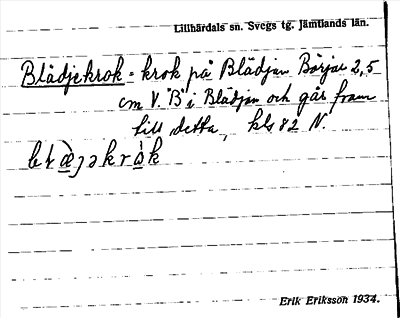 Lillhärdals sn. Svegs tg. Jämtlands län.
Blädjekrok = krok på Blädjan Börjar 2,5
cm V. "B" i Blädjan och går fram
till detta, kls 82 N.
Erik Eriksson 1934.